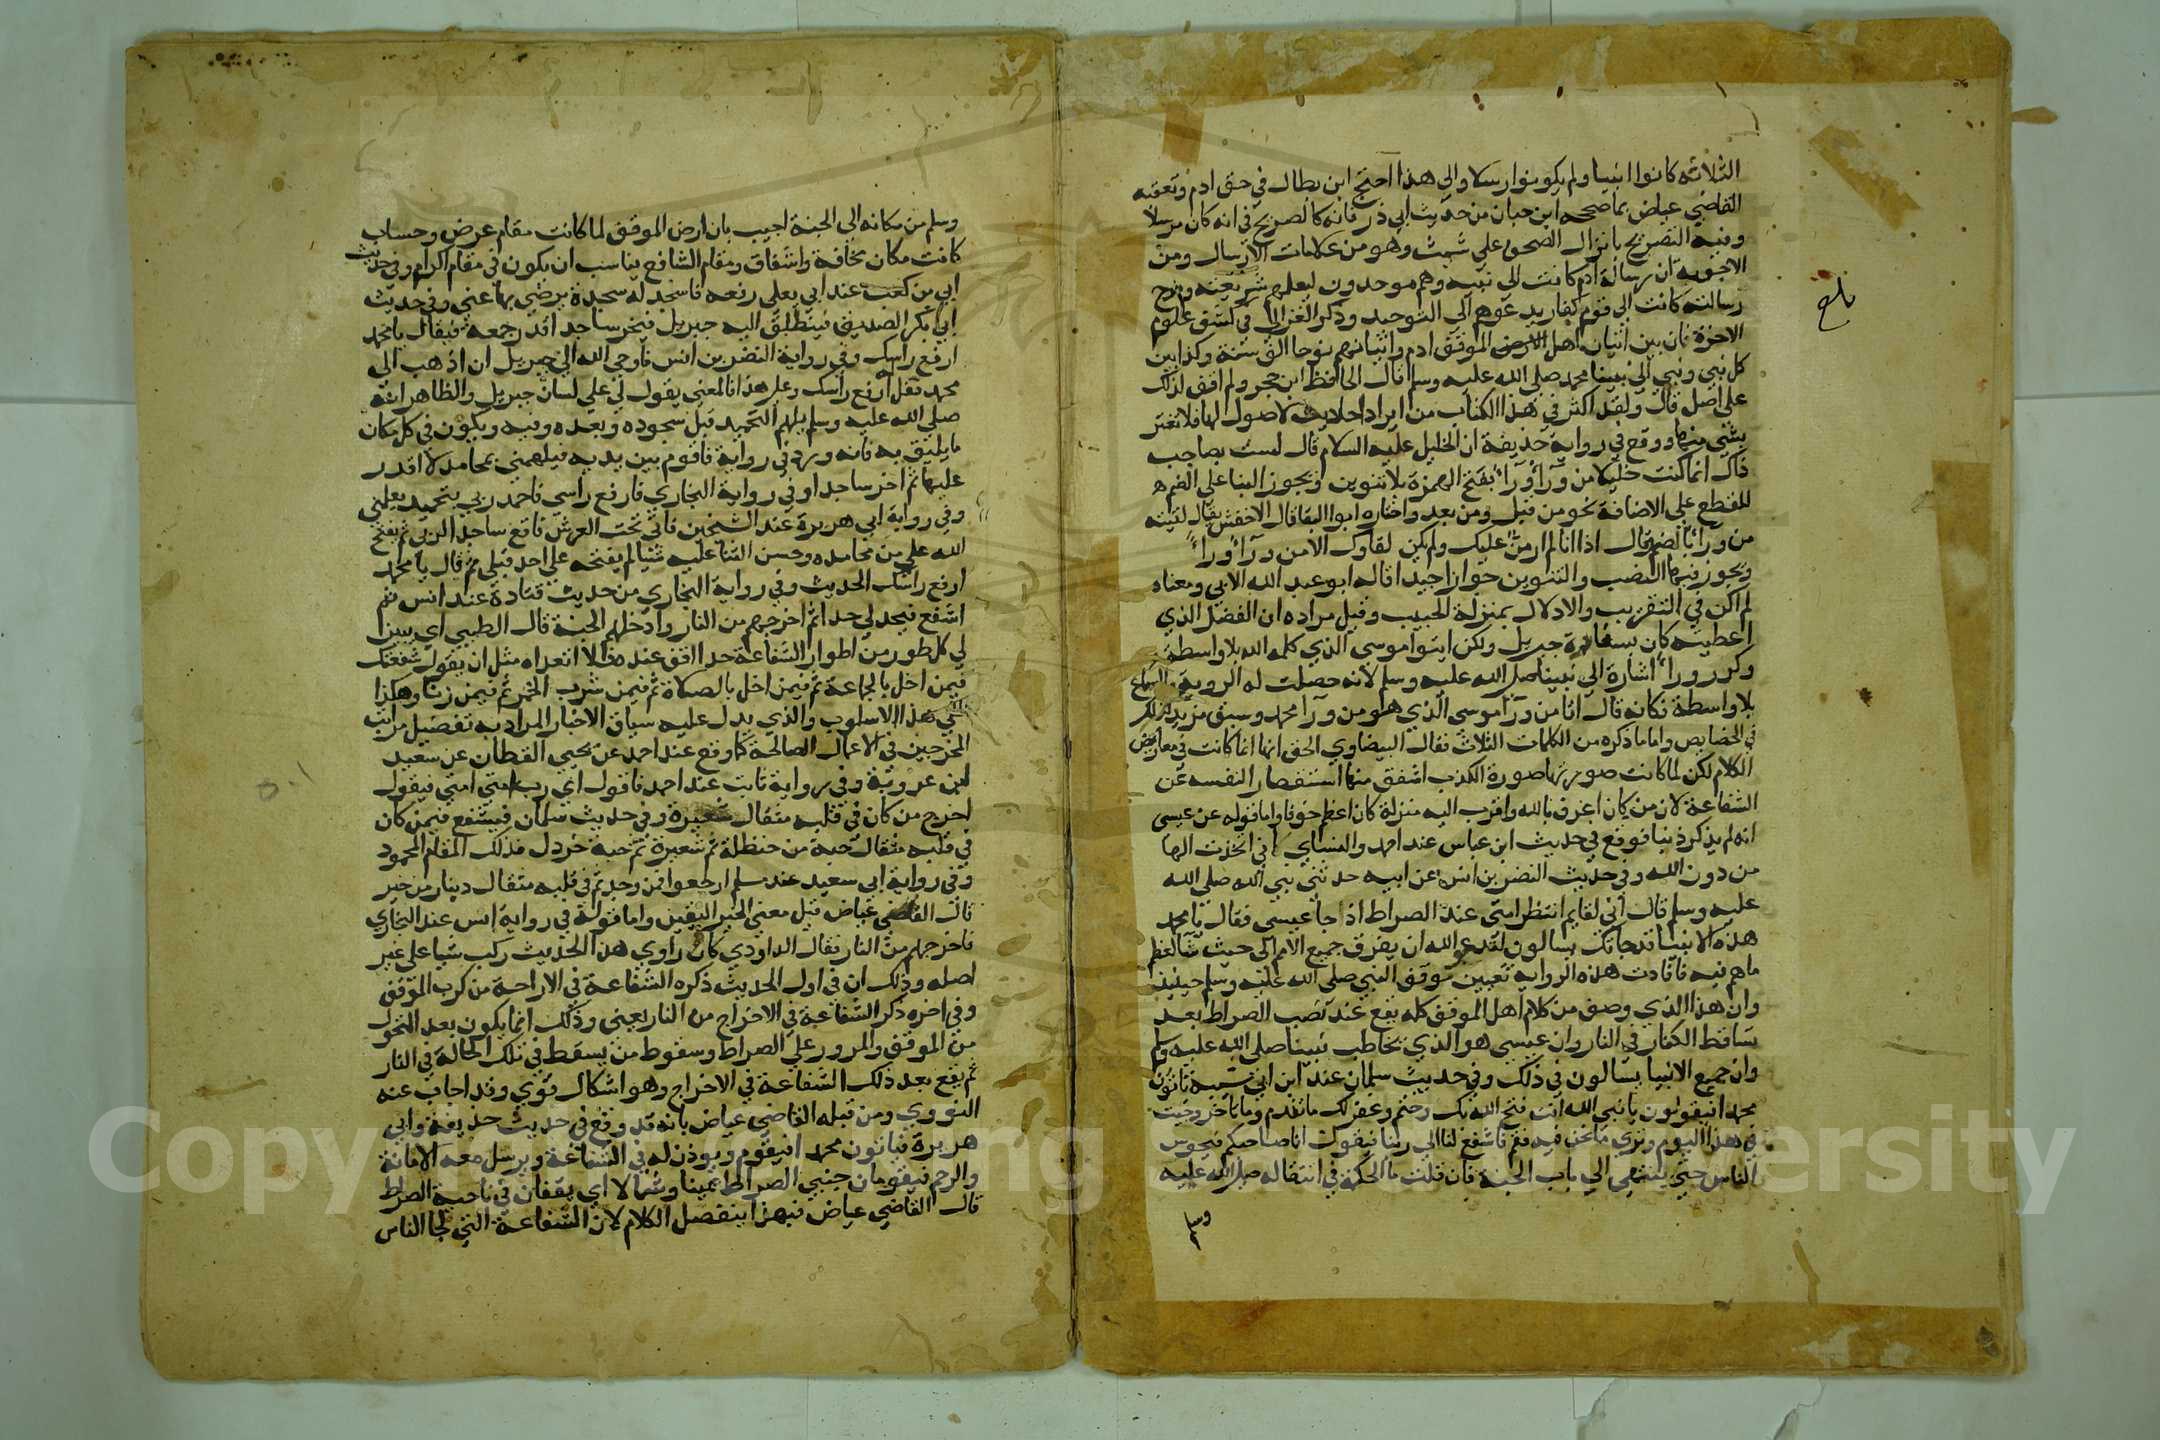 الثلاثة كانوا انبيا ولم يكونوا رسلا والي هذا احتج ابن بطال في حق ادم وتعقبه
القاضي عياض بما صححه ابن حبان من حديث ابي ذر فانه كالصريح في انه كان مرسلا
وفيه التصريح بانزال الصحف علي شيث وهو من علامات الارسال ومن
الاجوبة ان رسالة ادم كانت الي بنيه وهم موحدون ليعلمهم شريعته ونوح
رسالته كانت الي قوم كفار يدعوهم الي التوحيد وذكر الغزالي في كشف علوم
الاخرة ان بين اتيان اهل الموقف ادم واتيانهم نوحا الف سنة وكذا بين
كل نبي ونبي الي نبينا محمد صلي الله عليه وسلم قال الحافظ ابن حجر ولم اقف لذلك
علي اصل قال ولقد اكثر في هذا الكتاب من ايراد احاديث لا اصول لها فلا تغتر
بشي منها ووقع في رواية حذيفة ان الخليل عليه السلام قال لست بصاحب
ذاك انما كنت خليلا من ورآ ورآ بفتح الهمزة بلا تنوين ويجوز البنا علي الضم
للقطع علي الاضافة نحو من قبل ومن بعد واختاره ابوا البقا قال الاخفش يقال لقيته
من ورآ بالضم قال اذا انا لم اومن عليك ولم يكن لقاوك الا من ورآ ورآ
ويجوز فيها النصب والتنوين جوازا جيدا قاله ابو عبد الله الابي ومعناه
لم اكن في التقريب والادلال بمنزلة الحبيب وقيل مراده ان الفضل الذي
اعطيته كان بسفارة جبريل ولكن ايتوا موسي الذي كلمه الله بلا واسطة
وكرر ورآ اشارة الي نبينا صلي الله عليه وسلم لانه حصلت له الروية والسماع
بلا واسطة فكانه قال انا من ورآ موسي الذي هو من ورآ محمد وسبق مزيد لذلك
في الخصايص واما ما ذكره من الكلمات الثلاث فقال البيضاوي الحق انها انما كانت في معاريض
الكلام لكن لما كانت صورتها صورة الكذب اشفق منها استقصارا لنفسه عن
الشفاعة لان من كان اعرف بالله واقرب اليه منزلة كان اعظم خوفا واما قوله عن عيسي
انه لم يذكر ذنبا فوقع في حديث ابن عباس عند احمد والنساي اني اتخذت الها
من دون الله وفي حديث النضر بن انس عن ابيه حدثني نبي الله صلي الله
عليه وسلم قال اني لقايم انتظر امتي عند الصراط اذ جا عيسي فقال يا محمد
هذه الانبيا قد جاتك يسالون لتدعو الله ان يفرق جميع الامم الي حيث شا لعظم
ما هم فيه فافادت هذه الرواية تعيين موقف النبي صلي الله عليه وسلم حينيذ
وان هذا الذي وصف من كلام اهل الموقف كله يقع عند نصب الصراط بعد
تساقط الكفار في النار وان عيسي هو الذي يخاطب نبينا صلي الله عليه وسلم
وان جميع الانبيا يسالون في ذلك وفي حديث سلمان عند ابن ابي شيبة ياتون
محمدا فيقولون يا نبي الله انت فتح الله بك وختم وغفر لك ما تقدم وما تاخر وجيت
في هذا اليوم وتري ما نحن فيه فقم فاشفع لنا الي ربنا فيقول انا صاحبكم فيجوس
الناس حتي ينتهي الي باب الجنة فان قلت ما الحكمة في انتقاله صلي الله عليه
وسلم
بلغ
وسلم من مكانه الي الجنة اجيب بان ارض الموقف لما كانت مقام عرض وحساب
كانت مكان مخافة واشفاق ومقام الشافع يناسب ان يكون في مقام اكرام وفي حديث
ابي بن كعب عند ابي يعلي رفعه فاسجد له سجدة يرضي بها عني وفي حديث
ابي بكر الصديق فينطلق اليه جبريل فيخر ساجدا قدر جمعة فيقال يا محمد
ارفع راسك وفي رواية النضر بن انس فاوحي الله الي جبريل ان اذهب الي
محمد فقل ارفع راسك وعلي هذا فالمعني يقول لي علي لسان جبريل والظاهر انه
صلي الله عليه وسلم يلهم التحميد قبل سجوده وبعده وفيه ويكون في كل مكان
ما يليق به فانه ورد في رواية فاقوم بين يديه فيلهمني بمحامد لا اقدر
عليها ثم اخر ساجدا وفي رواية البخاري فارفع راسي فاحمد ربي بتحميد يعلمني
وفي رواية ابي هريرة عند الشيخين فاتي تحت العرش فاقع ساجدا لربي ثم يفتح
الله علي من محامده وحسن الثنا عليه شيا لم يفتحه علي احد قبلي ثم قال يا محمد
ارفع راسك الحديث وفي رواية البخاري من حديث قتادة عند انس ثم
اشفع فيحد لي حدا ثم اخرجهم من النار وادخلهم الجنة قال الطيبي اي يبين
لي كل طور من اطوار الشفاعة حدا اقف عنده فلا اتعداه مثل ان يقول شفعتك
فيمن اخل بالجماعة ثم فيمن اخل بالصلاة ثم فيمن شرب الخمر ثم فيمن زنا وهكذا
علي هذا الاسلوب والذي يدل عليه سياق الاخبار المراد به تفضيل مراتب
المخرجين في الاعمال الصالحة كما وقع عند احمد عن يحيي القطان عن سعيد
ابن عروبة وفي رواية ثابت عند احمد فاقول اي رب امتي امتي فيقول
اخرج من كان في قلبه مثقال شعيرة وفي حديث سلمان فيشفع فيمن كان
في قلبه مثقال حبة من حنطة ثم شعيرة ثم حبة خردل فذلك المقام المحمود
وفي رواية ابي سعيد عند مسلم ارجعوا فمن وجدتم في قلبه مثقال دينار من خير
قال القاضي عياض قيل معني الخير اليقين واما قوله في رواية انس عند البخاري
فاخرجهم من النار فقال الداودي كان راوي هذا الحديث ركب شيا علي غير
اصله وذلك ان في اول الحديث ذكره الشفاعة في الاراحة من كرب الموقف
وفي اخره ذكر الشفاعة في الاخراج من النار يعني وذلك انما يكون بعد التحول
من الموقف والمرور علي الصراط وسقوط من يسقط في تلك الحالة في النار
ثم يقع بعد ذلك الشفاعة في الاخراج وهو اشكال قوي وقد اجاب عنه
النووي ومن قبله القاضي عياض بانه قد وقع في حديث حذيفة وابي
هريرة فياتون محمدا فيقوم ويوذن له في الشفاعة ويرسل معه الامانة
والرحم فيقومان جنبي الصراط يمينا وشمالا اي يقفان في ناحية الصراط
قال القاضي عياض فبهذا ينفصل الكلام لان الشفاعة التي لجا الناس